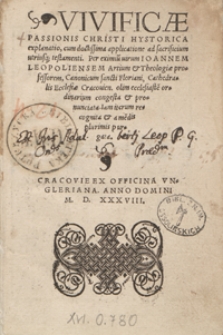 VIVIFICÆ
PASSIONIS CHRISTI HYSTORICA
explanatio, cum doctissima applicatione ad sacrificium
utriusq; testamenti. Per eximiū uirum IOANNEM
LEOPOLIENSEM Artium & Theologiæ pro-
fessorem, Canonicum sancti Floriani, Cathedra-
lis Ecclesiæ Cracouien. olim ecclesiastē or-
dinarium congesta & pro-
nunciata iam uerum re-
cognita & amēdis
plurimis pur-
gac.
Leop P. G.
CRACOVIÆ EX OFFICINA VN-
GLERIANA. ANNO DOMINI
M. D. XXXVIII.
XVI. O. 780